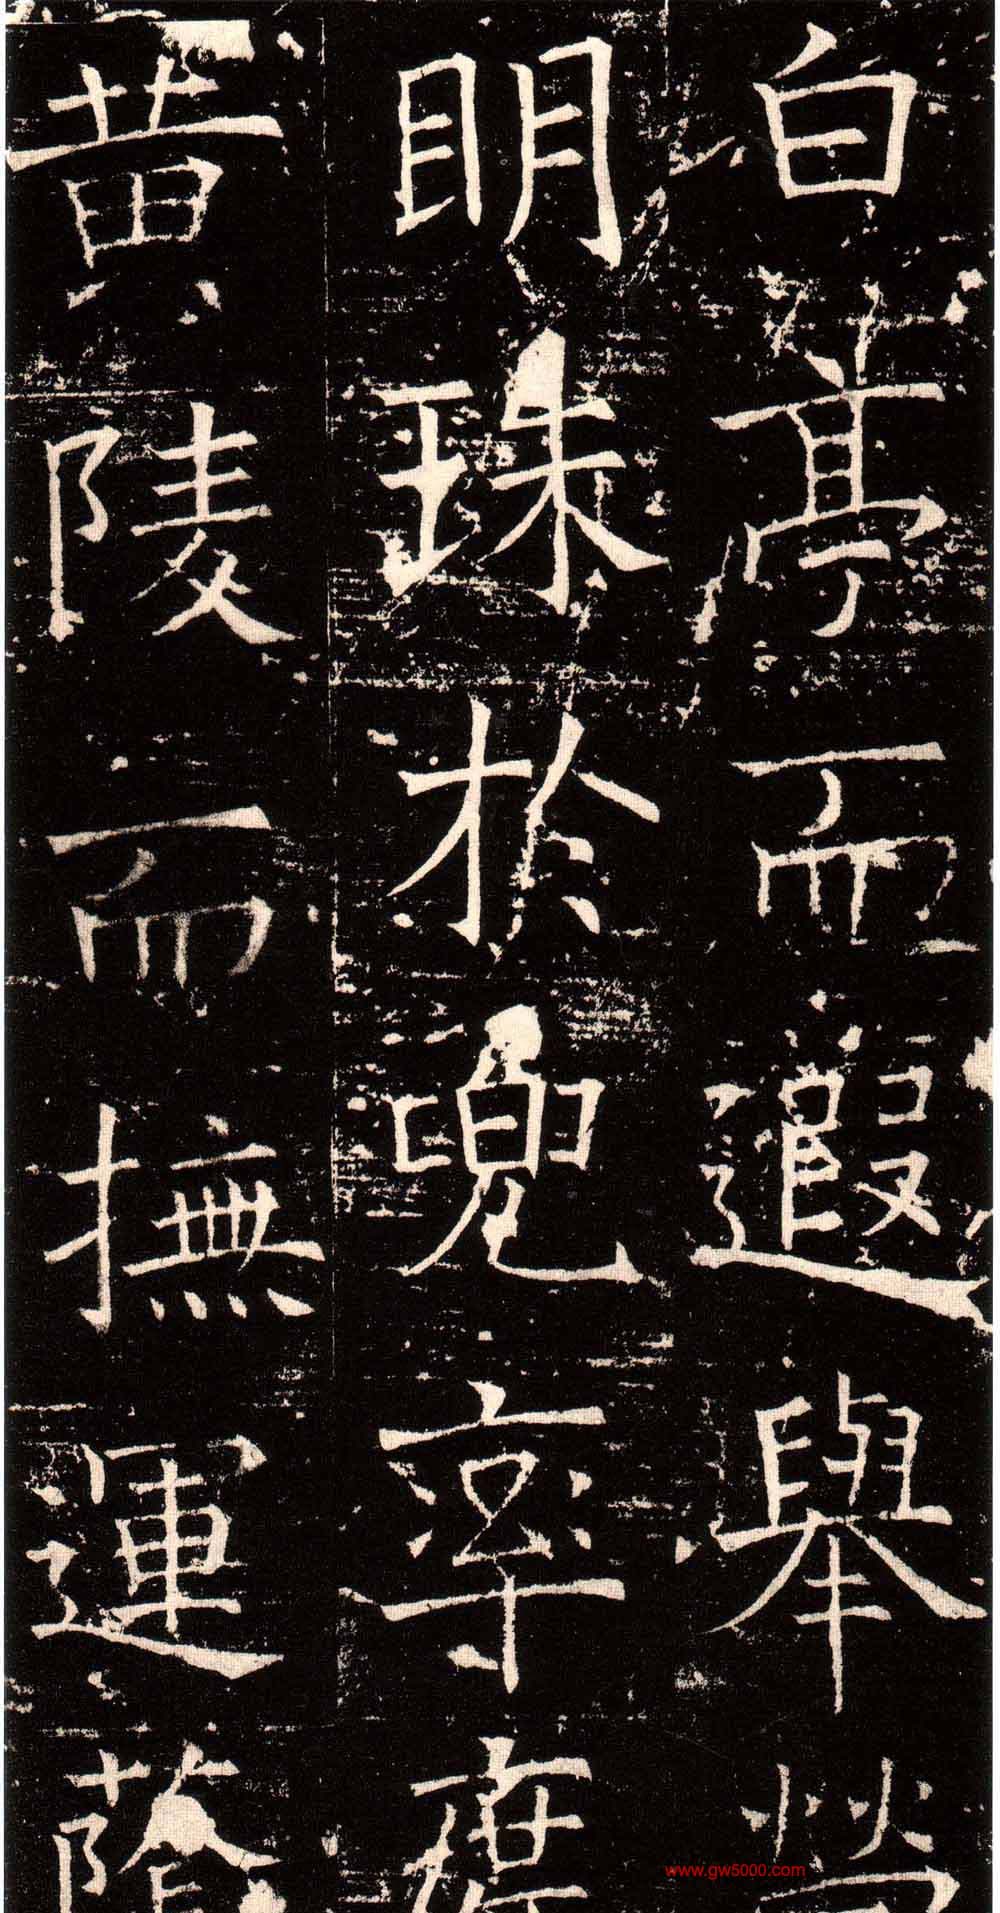 白亭而遐舉瑩
明珠於兜率度
黃陵而撫運蔭
www.gw5000.com